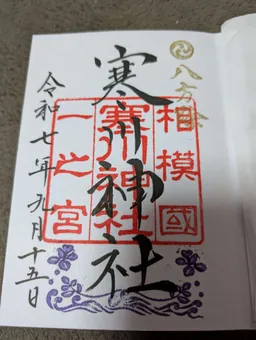 八方除
寒川神社
相模國
寒川神社
一之宮
令和七年九月十五日